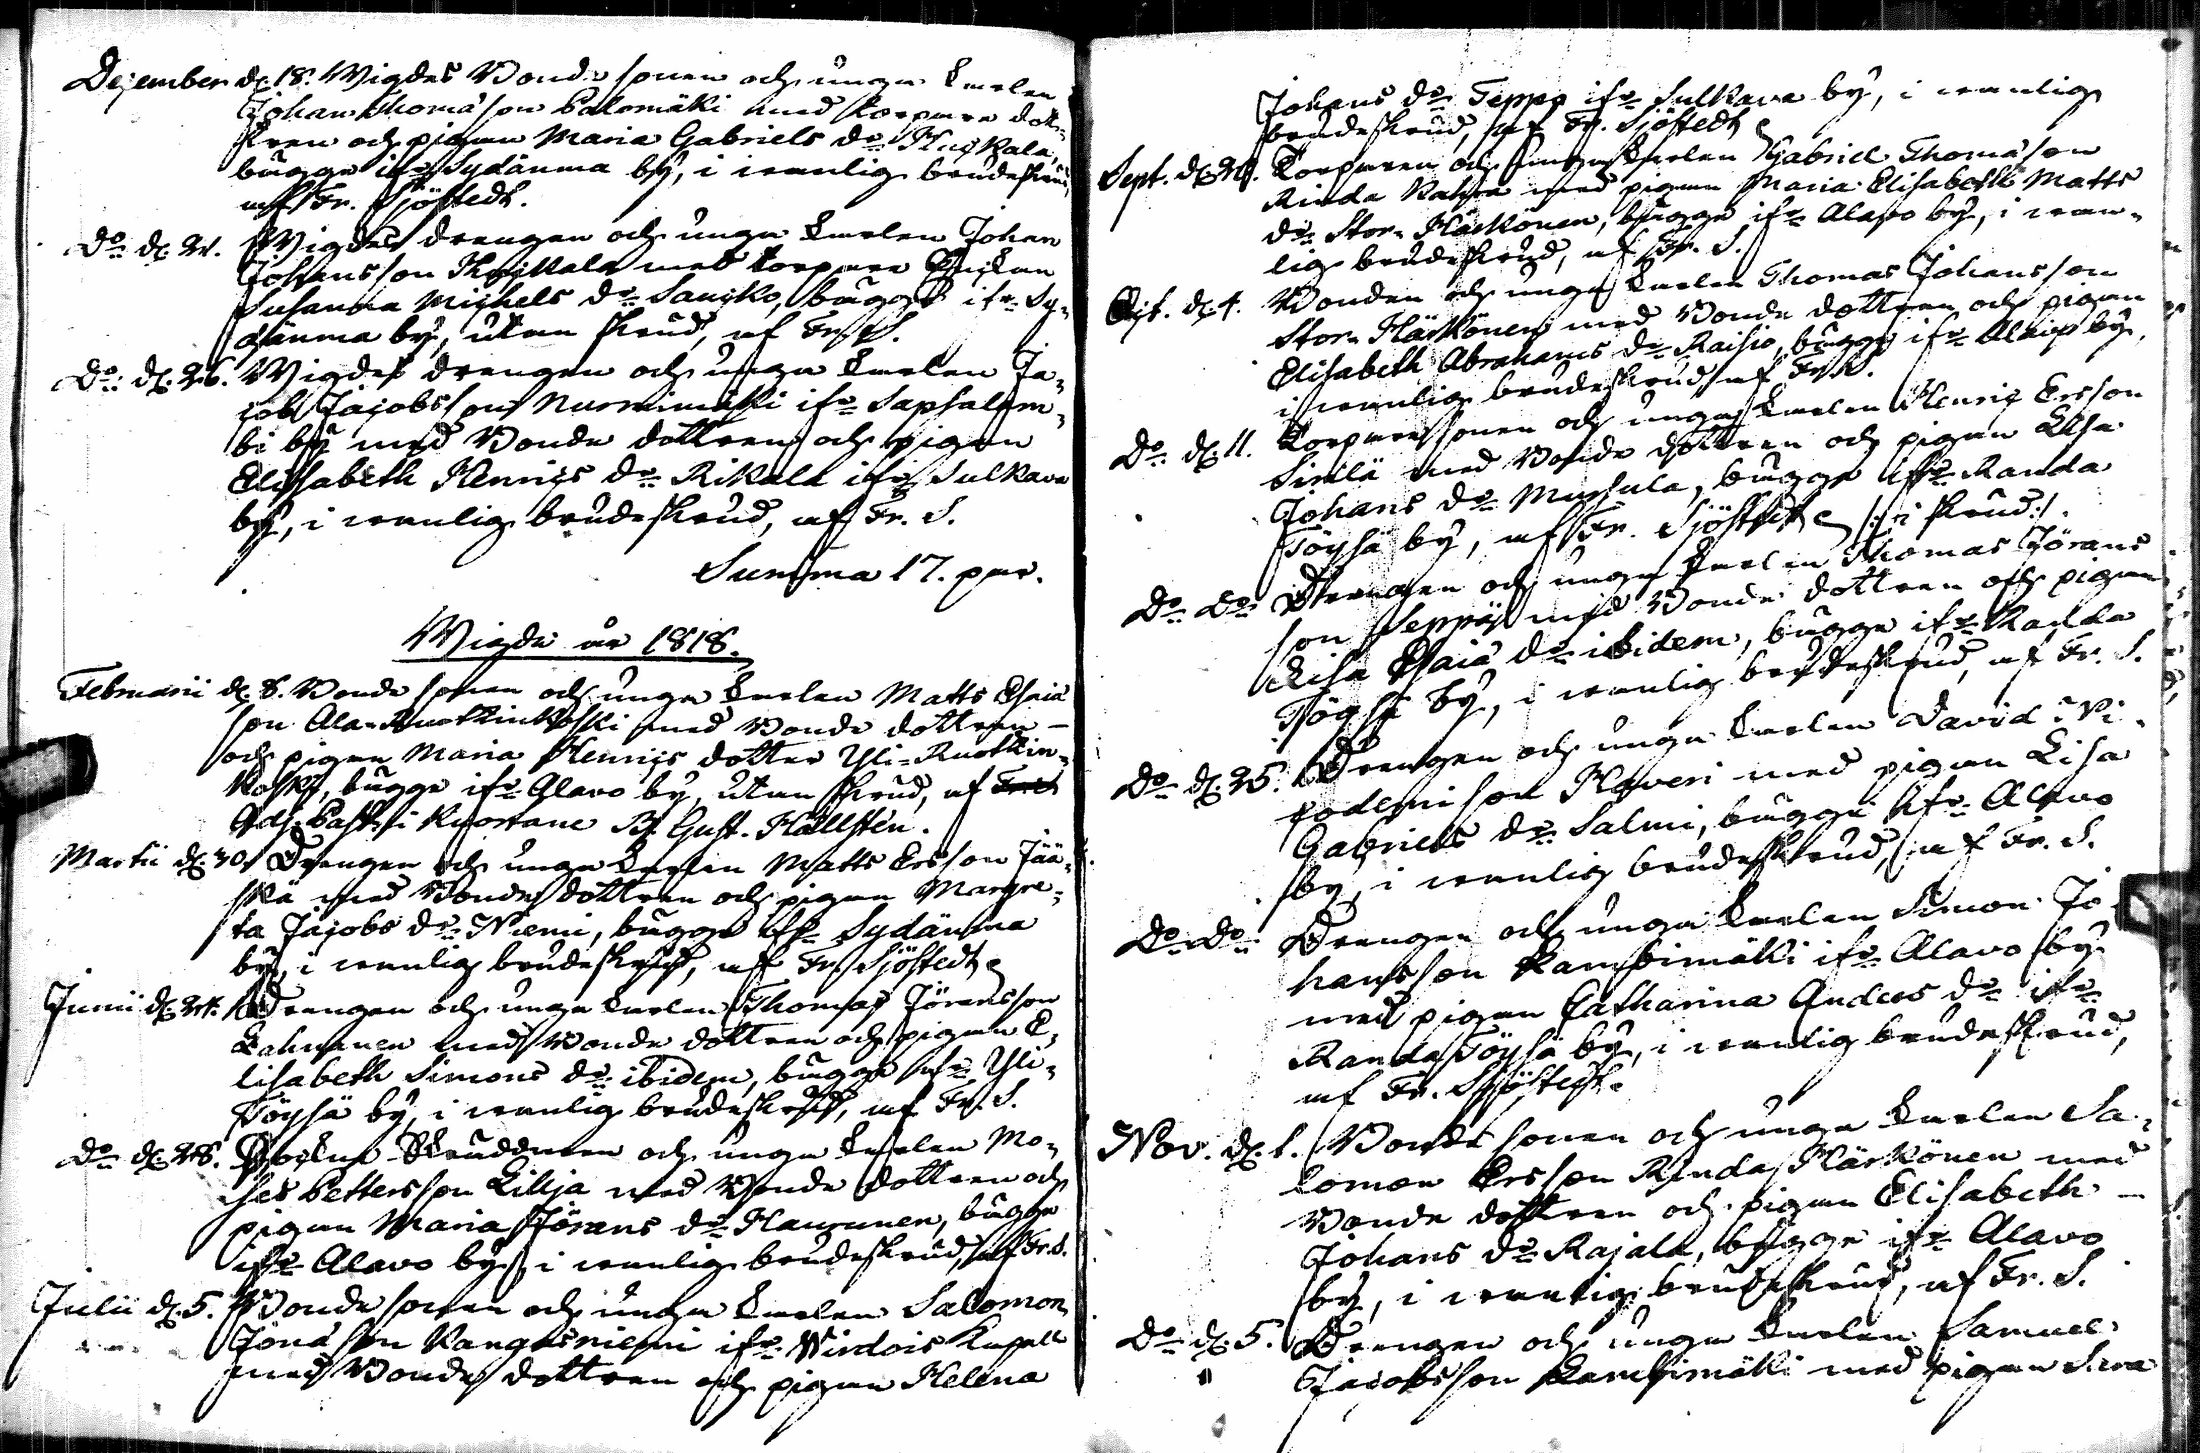 December d. 18. Wigdes Bonde sonen och unga Karlen
Johan Thomasson Palomäki med torpare dott-
tren och pigan Maria Gabriels dr Kuckala,
bägge ifr Sydänma by, i wanlig brudeskrud,
af Fr. Sjöstedt.
Do d. 21. Wigdes drengen och unga Karlen Johan
Johansson med torpare Enkan
Susanna Michels dr Sancko, bägge ifr Sy-
dänma by, utan skrud, af Fr. S.
Do d. 26. Wigdes drengen och unga Karlen Ja-
cob Jacobsson Nurmimäki ifr Sapsalam-
bi by med Bonde dottren och pigan
Elisabeth Henrics dr Rikala ifr Sulkava
by, i wanlig brudeskrud, af Fr. S.
Summa 17. par.
Wigde år 1818.
Februarii d. 8. Bonde sonen och unga Karlen Matts Esaia
son Ala-Ruotkinkoski med Bonde dottren
och pigan Maria Henrics dotter Yli-Ruotkin-
koski, bägge ifr Alavo by, utan skrud, af
Adj. Past. i Kuortane B. Gust. Hällsten.
Martii d. 30. Drengen och unga Karlen Matts Ersson Jääs-
kä med Bonde dottren och pigan Margre-
ta Jacobs dr Niemi, bägge ifr Sydänma
by, i wanlig brudeskrud, af Fr. Sjöstedt
Junii d. 24. Drengen och unga Karlen Thomas Jöransson
Lahnanen med Bonde dottren och pigan E-
lisabeth Simons dr ibidem, bägge ifr Yli-
Töysä by, i wanlig brudeskrud, af Fr. S.
Do d. 28. och unga Karlen Mo-
ses Pettersson Lillja med Bonde dottren och
pigan Maria Jörans dr Haurunen, bägge
ifr Alavo by, i wanlig brudeskrud, af Fr. S.
Julii d. 5. Bonde sonen och unga Karlen Salomon
Jona son Kangasniemi ifr Wirdois Kapell
med Bonde dottren och pigan Helena
Johans dr Seppo ifr Sulkava by, i wanlig
brudeskrud, af Fr. Sjöstedt
Sept. d. Torparen och unga Karlen Gabriel Thomasson
Rinda med pigan Maria Elisabeth Matts
dr Stor-Härkönen, bägge ifr Alavo by, i wan-
lig brudeskrud, af Fr. S.
Oct. d. 4. Bonden och unga Karlen Thomas Johansson
Stor-Härkönen med Bonde dottren och pigan
Elisabeth Abrahams dr Raisio, bägge ifr Alavo by,
i wanlig brudeskrud af Fr. S.
Do d. 11. Torpare sonen och unga Karlen Henric Ersson
Sirilä med Bonde dottren och pigan Elsa
Johans dr Mursula, bägge ifr Randa
Töysä by, af Fr. Sjöstedt /: i skrud :/.
Do Do Drengen och unga Karlen Thomas Jörans
son Seppä med Bonde dottren och pigan
Lisa Esaia dr ibidem, bägge ifr Randa
Töysä by, i wanlig brudeskrud, af Fr. S.
Do d. 25. Drengen och unga Karlen David Ni-
codemi son Haveri med pigan Lisa
Gabriels dr Salmi, bägge ifr Alavo
by, i wanlig brudeskrud, af Fr. S.
Do Do Drengen och unga Karlen Simon Jo-
hansson Kambimäki ifr Alavo by
med pigan Catharina Anders dr ifr
Randa Töysä by, i wanlig brudeskrud,
af Fr. Sjöstedt.
Nov. d. 1. Bonde sonen och unga Karlen Sa-
lomon Ersson Rinda Härkönen med
Bonde dottren och pigan Elisabeth
Johans dr Rajala, bägge ifr Alavo
by, i wanlig brudeskrud, af Fr. S.
Do d. 5. Drengen och unga Karlen Samuel
Jacobsson Kambimäki med pigan